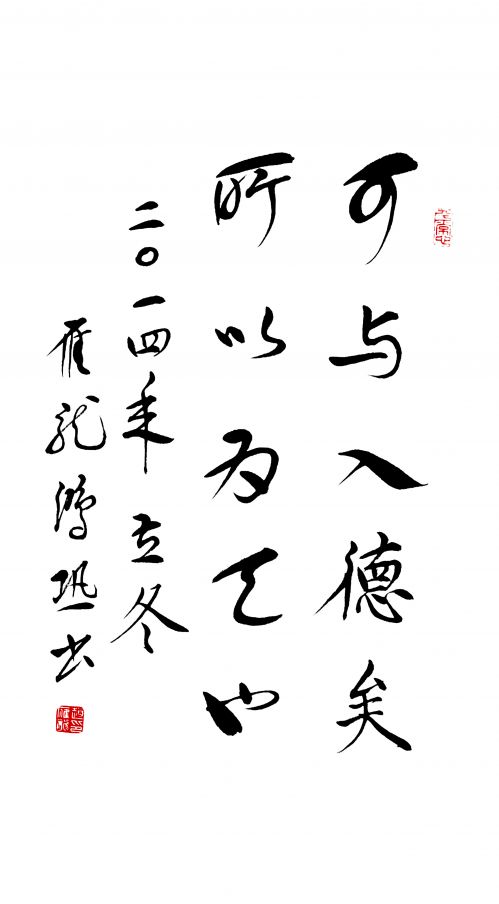 可与入德矣
所以为天也
二〇一四年立冬
雁龙鸿书